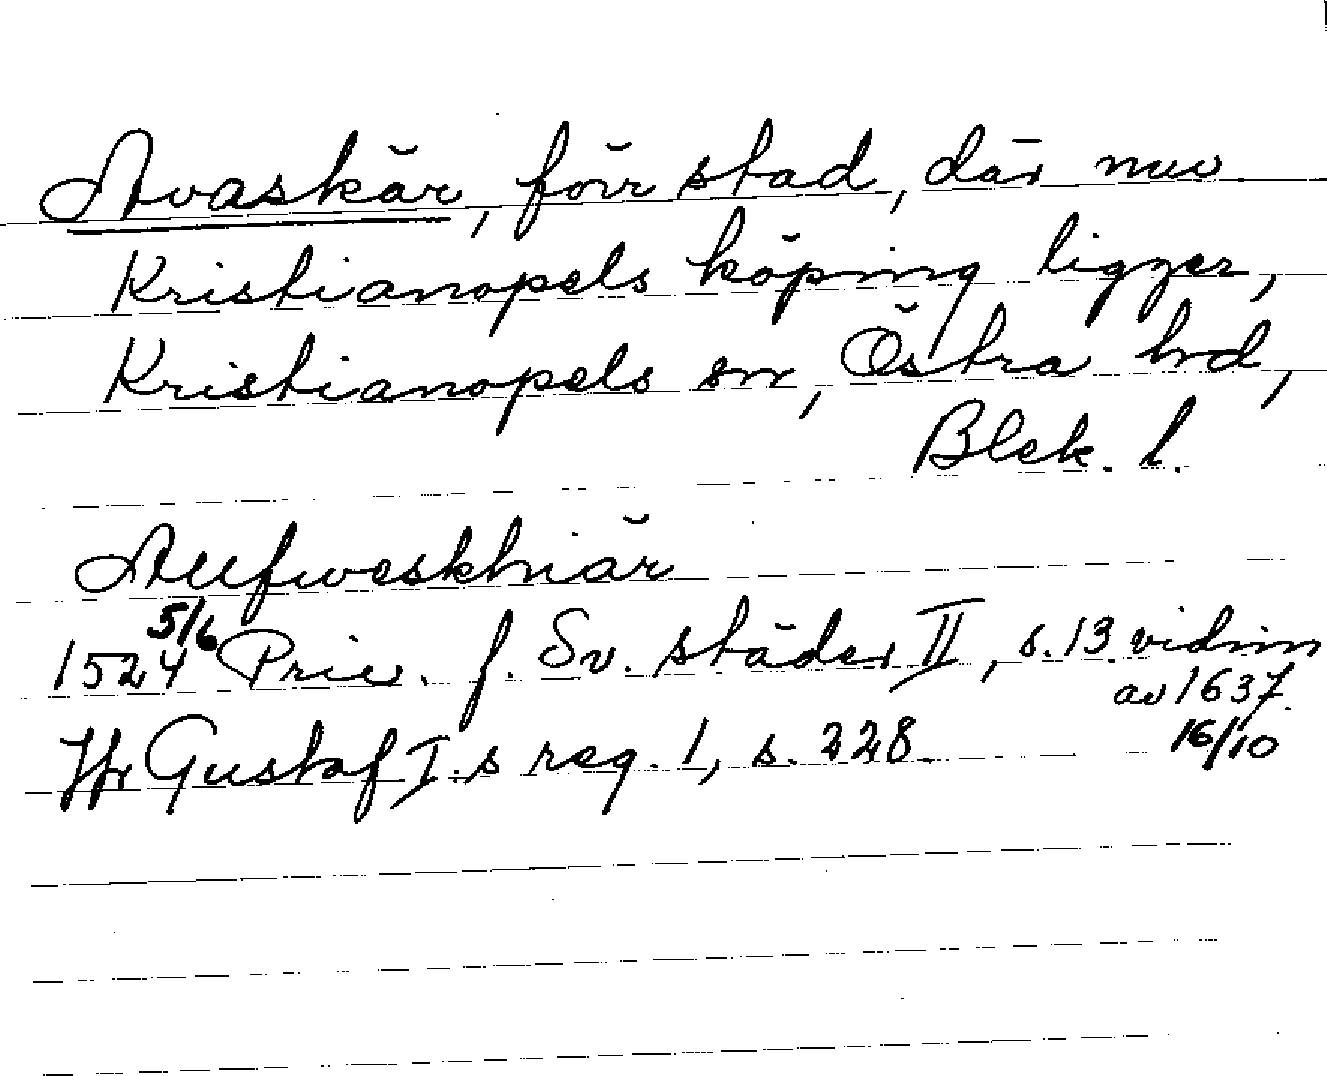 Avaskär, förr stad, där nuv
Kristianopels köping ligger,
Kristianopels sn, Östra hd,
Blek. l.
Aufweskhiär
1524 5/6 Priv. f. Sv. städer II, s. 13. vidim
av 1637
16/10
Jfr Gustaf I.s reg. 1, s. 228